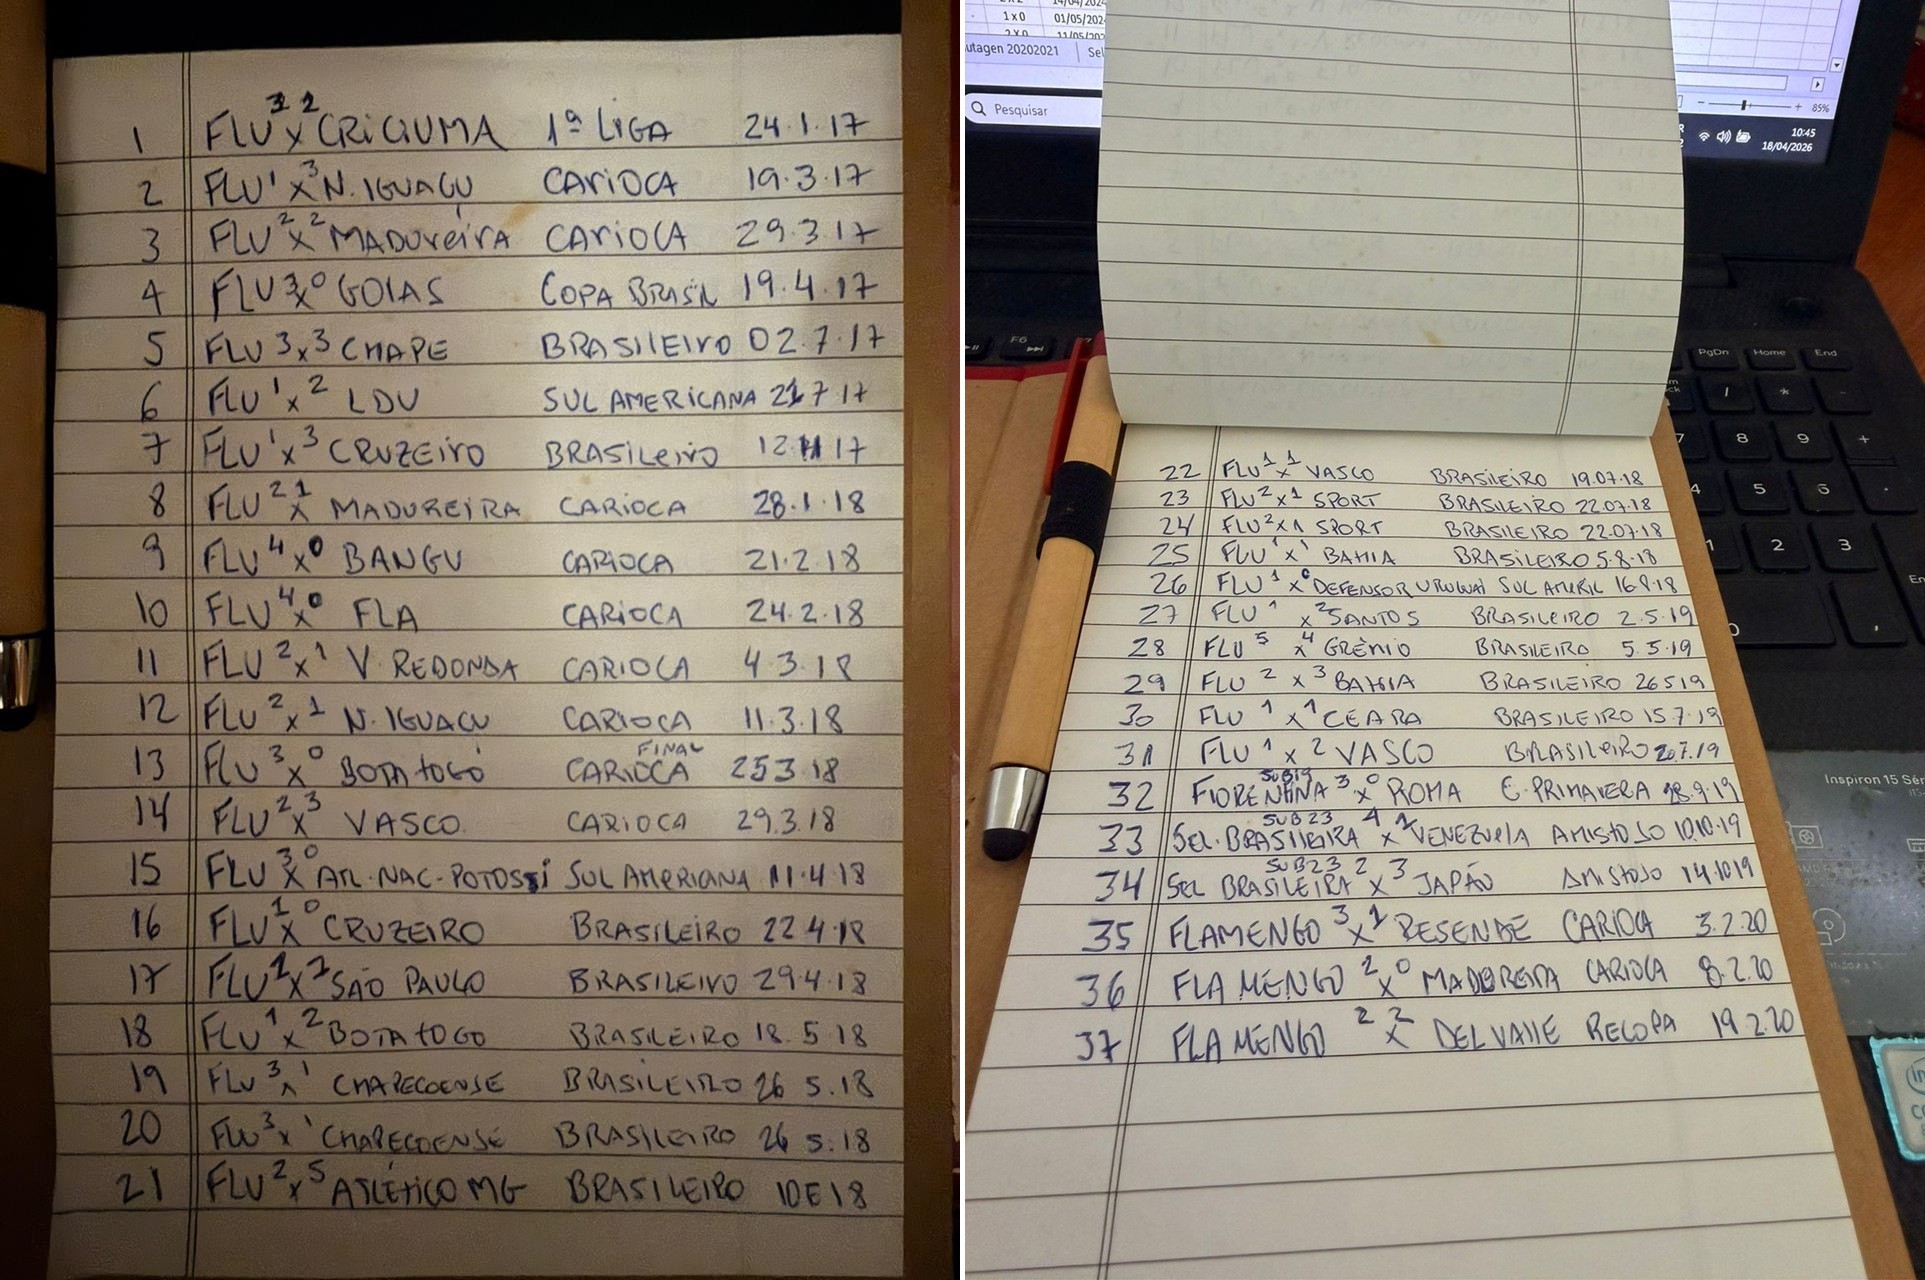 1 FLU 3 x 2 CRICIUMA 1ª LIGA 24.1.17
2 FLU 1 x 3 N. IGUAÇU CARIOCA 19.3.17
3 FLU 2 x 2 MADUREIRA CARIOCA 29.3.17
4 FLU 3 x 0 GOIAS COPA BRASIL 19.4.17
5 FLU 3 x 3 CHAPE BRASILEIRO 02.7.17
6 FLU 1 x 2 LDU SUL AMERICANA 21 7 17
7 FLU 1 x 3 CRUZEIRO BRASILEIRO 12 11 17
8 FLU 2 x 1 MADUREIRA CARIOCA 28.1.18
9 FLU 4 x 0 BANGU CARIOCA 21.2.18
10 FLU 4 x 0 FLA CARIOCA 24.2.18
11 FLU 2 x 1 V. REDONDA CARIOCA 4.3.18
12 FLU 2 x 1 N. IGUAÇU CARIOCA 11.3.18
13 FLU 3 x 0 BOTAFOGO CARIOCA FINAL 25 3.18
14 FLU 2 x 3 VASCO CARIOCA 29.3.18
15 FLU 3 x 0 ATL. NAC-POTOSSI SUL AMERICANA 11.4.18
16 FLU 1 x 0 CRUZEIRO BRASILEIRO 22 4.18
17 FLU x SÃO PAULO BRASILEIRO 29.4.18
18 FLU 1 x 2 BOTAFOGO BRASILEIRO 18.5 18
19 FLU 3 x 1 CHAPECOENSE BRASILEIRO 26 5.18
20 FLU 3 x 1 CHAPECOENSE BRASILEIRO 26 5.18
21 FLU 2 x 5 ATLÉTICO MG BRASILEIRO 10 6 18
1 x 0 01/05/202
2 X 0 11/05/202
utagen 20202021 Sel
Pesquisar
85%
10:45
18/04/2026
F6
PgDn Home End
22 FLU 1 x 1 VASCO BRASILEIRO 19.07.18
23 FLU 2 x 1 SPORT BRASILEIRO 22.07.18
24 FLU 2 x 1 SPORT BRASILEIRO 22.07.18
25 FLU 1 x 1 BAHIA BRASILEIRO 5.8.18
26 FLU 1 x 0 DEFENSOR URUGUAI SUL AMERIC 16.8.18
27 FLU 1 x 2 SANTOS BRASILEIRO 2.5.19
28 FLU 5 x 4 GRÊMIO BRASILEIRO 5.5.19
29 FLU 2 x 3 BAHIA BRASILEIRO 26 5 19
30 FLU 1 x 1 CEARA BRASILEIRO 15.7.19
31 FLU 1 x 2 VASCO BRASILEIRO 20.7.19
32 FIORENTINA SUB19 3 x 0 ROMA C. PRIMAVERA 28.9.19
33 SEL. BRASILEIRA SUB 23 4 x 1 VENEZUELA AMISTOSO 10.10.19
34 SEL BRASILEIRA SUB23 2 x 3 JAPÃO AMISTOSO 14.10 19
35 FLAMENGO 3 x 1 RESENDE CARIOCA 3.2.20
36 FLAMENGO 2 x 0 MADUREIRA CARIOCA 8.2.20
37 FLAMENGO 2 x 2 DEL VALLE RECOPA 19.2.20
Inspiron 15 Sér